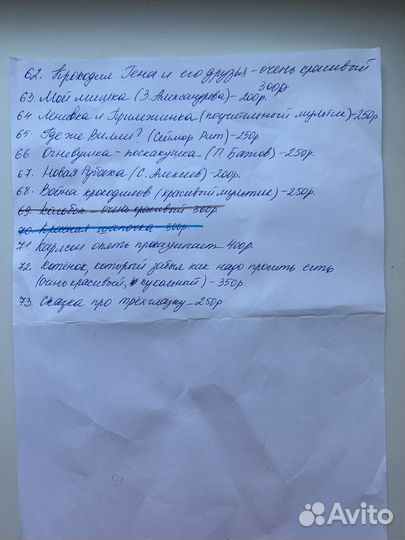 62. Крокодил Гена и его друзья - очень красивый
300р.
63. Мой мишка (З. Александрова) - 200р.
64. Ленивка и Прилежинка (поучительный мультик) - 250р
65. Где же Вилли? (Сеймор Рит) - 250р.
66. Огневушка - поскакушка. (П. Бажов) - 250р.
67. Новая Рубаха (С. Алексеев) - 200р.
68. Война крокодилов (красивый мультик) - 250р.
69. Колобок - очень красивый 300р.
70. Красная шапочка - 300р.
71. Карлсон опять проказничает - 400р.
72. Котёнок, который забыл как надо просить есть
(очень красивый, кукольный) - 350р
73. Сказка про трёхглазку - 250р
Avito